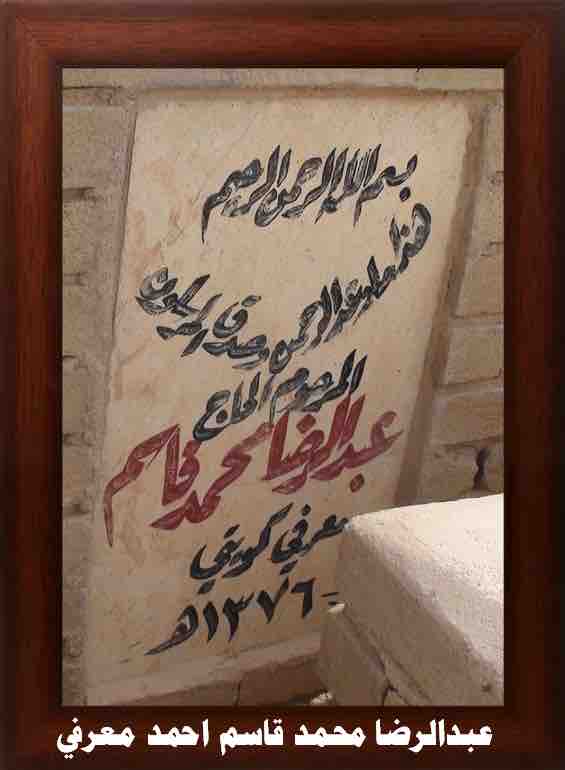 بسم الله الرحمن الرحيم
هذا ما وعد الرحمن وصدق المرسلون
المرحوم الحاج
عبد الرضا محمد قاسم
معرفي كويتي
١٣٧٦ هـ
عبدالرضا محمد قاسم احمد معرفي